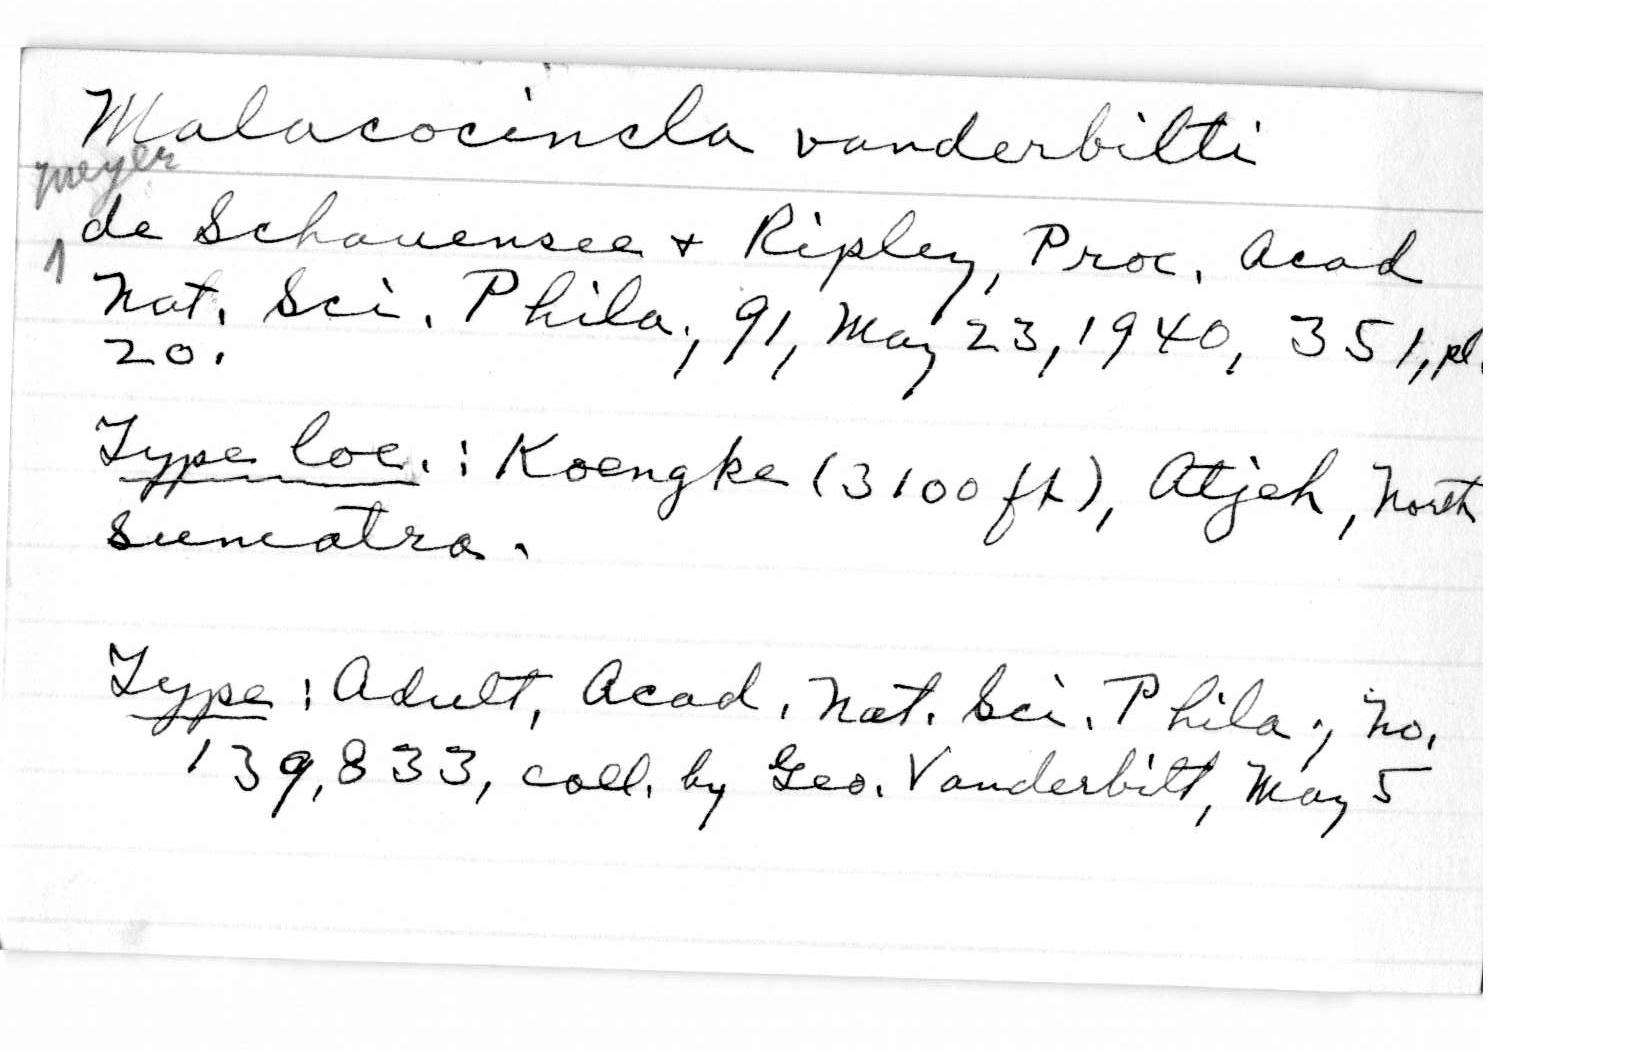 Malacocincla vanderbilti
meyer
de Schauensee + Ripley, Proc. Acad
Nat. Sci. Phila., 91, May 23, 1940, 351, pl.
20.
Type loc.: Koengke (3100 ft), Atjeh, North
Sumatra.
Type: Adult, Acad. Nat. Sci. Phila., No.
139,833, coll. by Geo. Vanderbilt, May 5